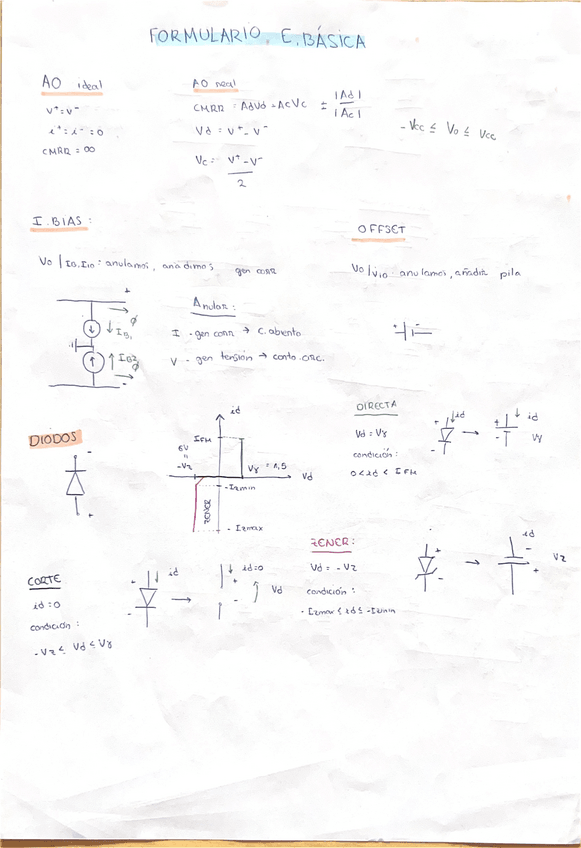 FORMULARIO E. BÁSICA
AO ideal
V⁺=V⁻
i⁺=i⁻=0
CMRR = ∞
AO real
CMRR = AdVd + AcVc = |Ad| / |Ac|
Vd = V⁺ - V⁻
Vc = V⁺-V⁻ / 2
-Vcc ≤ Vo ≤ Vcc
I. BIAS:
Vo / IB, Iio: anulamos, añadimos gen corr
+
ϕ
↓ IB1
↑ IB2
ϕ
-
Anular:
I - gen corr → C. abierto.
V - gen tensión → corto. circ.
OFFSET
Vo/Vio: anulamos, añadir pila
+ -
DIODOS
-
+
id
IFM
6V
=
-Vz
Vγ = 1,5
Vd
-Izmin
ZENER
-Izmax
DIRECTA
Vd = Vγ
condición:
0 < id < IFM
+ id → + ↓ id
- - Vγ
CORTE
id = 0
condición:
-Vz ≤ Vd ≤ Vγ
+ ↓ id → ↓ id=0
- + - Vd
ZENER:
Vd = -Vz
condición:
-Izmax ≤ id ≤ -Izmin
+ → id
- - + Vz